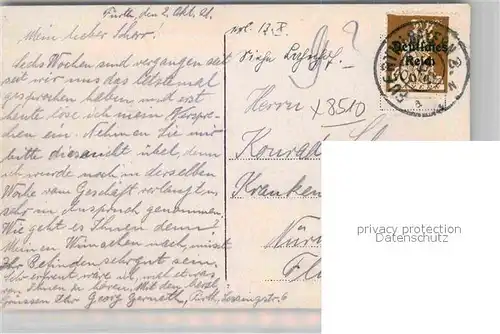 Fürth, den 2. Okt. 21.
Mein lieber Schorr.
Sechs Wochen sind vergangen seit
seit wir uns das letztemal
gesprochen haben und erst
heute löse ich mein Verspre-
chen ein. Nehmen Sie mir
bitte dies nicht übel, denn
ich wurde noch in derselben
Woche vom Geschäft verlangt u.
sehr in Anspruch genommen.
Wie geht es Ihnen denn?
Meinen Wünschen nach, müsst
Ihr Befinden sehr gut sein.
Sehr erfreut wäre ich, mal etwas
von Ihnen zu hören. Mit den herzl.
Grüssen Ihr Georg Gerneth, Fürth, Lessingstr. 6
17.X.
Deutsches
Reich
Herrn
x8510
Konrad
Kranken
Nür
privacy protection
Datenschutz